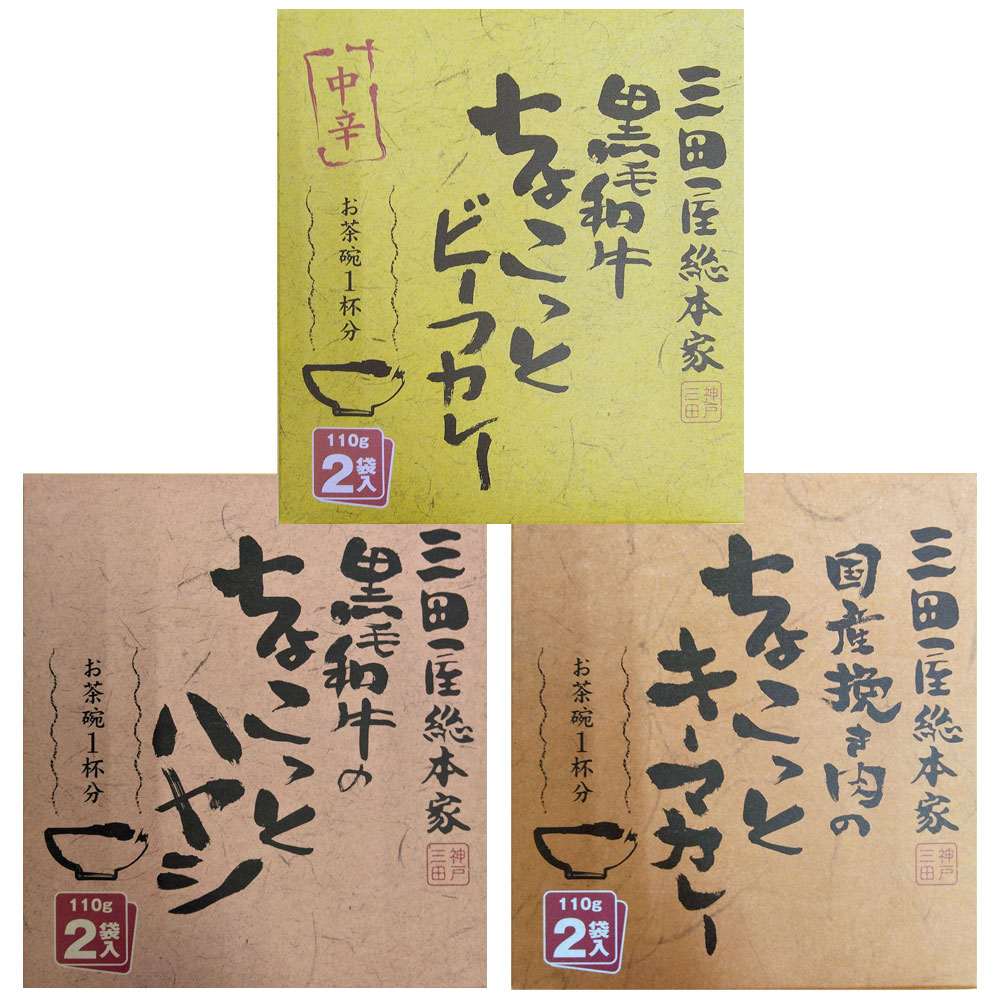 三田屋総本家
黒毛和牛
ちょこっと
ビーフカレー
中辛
お茶碗1杯分
神戸
三田
110g
2袋入
三田屋総本家
黒毛和牛の
ちょこっと
ハヤシ
お茶碗1杯分
神戸
三田
110g
2袋入
三田屋総本家
国産挽き肉の
ちょこっと
キーマカレー
お茶碗1杯分
神戸
三田
110g
2袋入